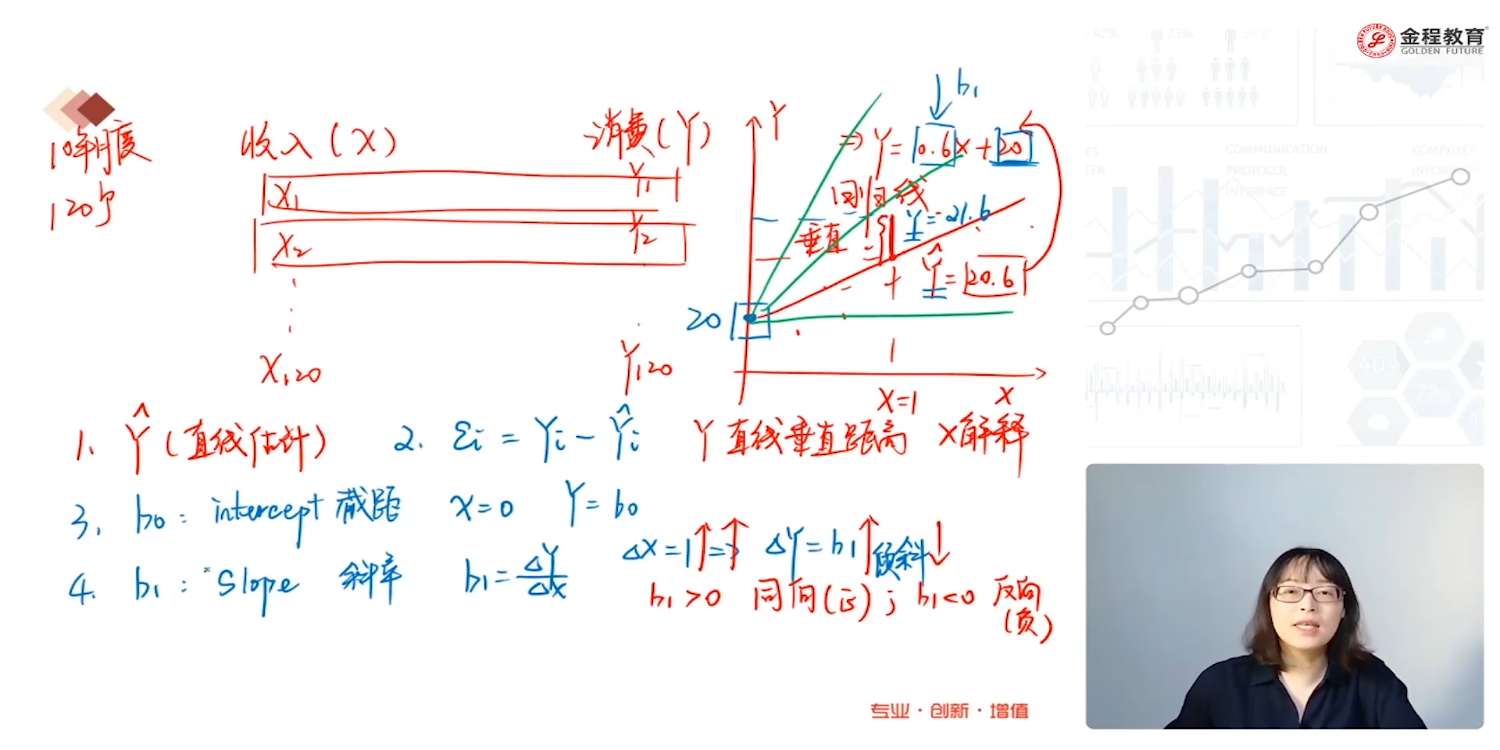 金程教育
GOLDEN FUTURE
10年月度
120个
收入(X)
消费(Y)
X₁
Y₁
X₂
Y₂
X₁₂₀
Y₁₂₀
b₁
Y
⇒ Y=0.6x+20
回归线
垂直
Y=21.6
Ŷ=20.6
20
1
X=1
X
1. Ŷ(直线估计) 2. εi = Yi - Ŷi Y直线垂直距离 X解释
3. b₀: intercept 截距 X=0 Y=b₀
4. b₁: Slope 斜率 b₁=ΔY/ΔX ΔX=1↑⇒↑ ΔY=b₁↑倾斜↓
b₁>0 同向(正); b₁<0 反向(负)
COMMUNICATION
PROTOCOL
专业·创新·增值